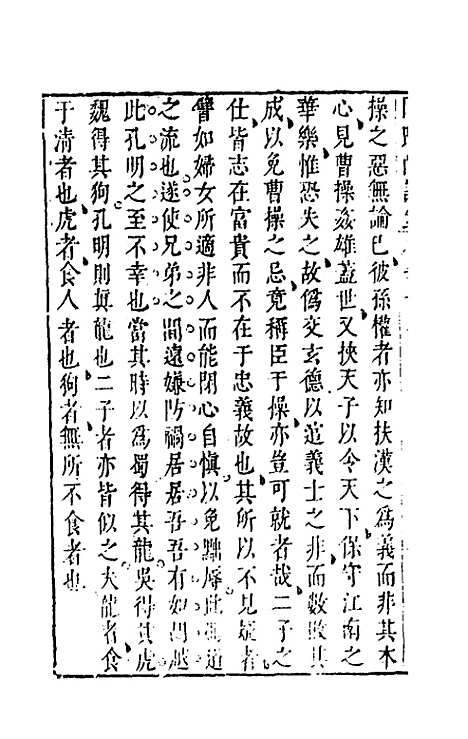 操之惡無論已彼孫權者亦知扶漢之爲義而非其本
心見曹操姦雄蓋世又挾天子以令天下保守江南之
華樂惟恐失之故爲交玄德以萓義士之非而數敗其
成以免曹操之忌竟稱臣于操亦豈可就者哉二子之
仕皆志在富貴而不在于忠義故也其所以不見疑者
譬如婦女所適非人而能閉心自愼以免黜辱此
之流也遂使兄弟之間遠嫌防禍居居吾吾有如胡越
此孔明之至不幸也當其時以爲蜀得其龍吳得其虎
魏得其狗孔明則眞龍也二子者亦皆似之夫龍者食
于清者也虎者食人者也狗者無所不食者也